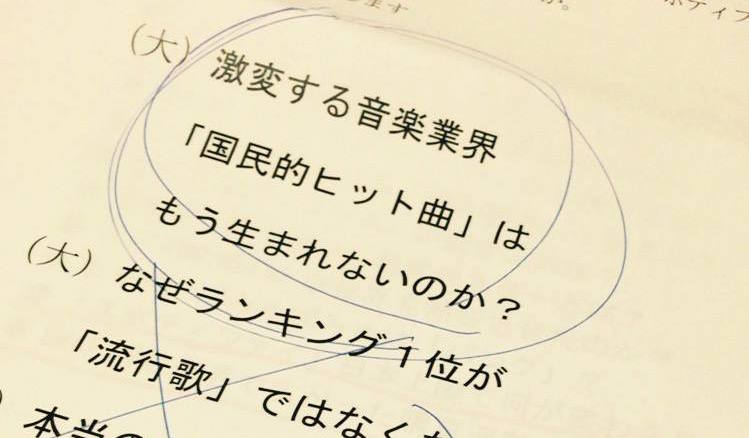 （大） 激変する音楽業界
「国民的ヒット曲」は
もう生まれないのか？
（大） なぜランキング１位が
「流行歌」ではなく
本当の